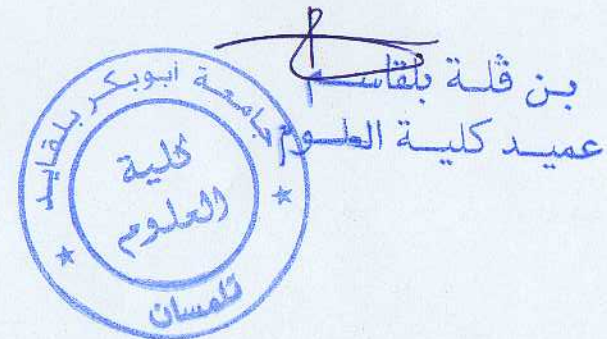 بن ڨلة بلقاسم
عميد كلية العلوم
جامعة أبوبكر بلقايد
كلية
العلوم
تلمسان